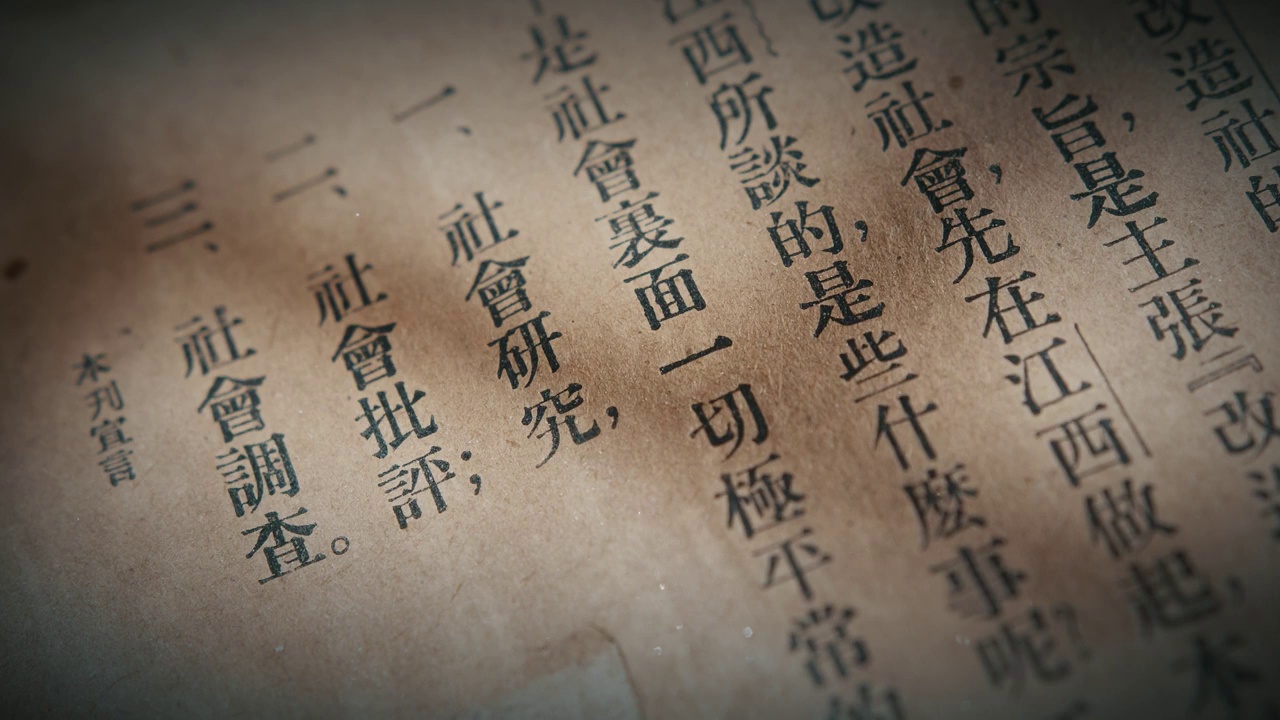 改造社的
的宗旨，是主張『改造
改造社會，先在江西做起，本
江西所談的，是些什麼事呢？
是社會裏面一切極平常的
一、社會研究，
二、社會批評；
三、社會調查。
本刊宣言